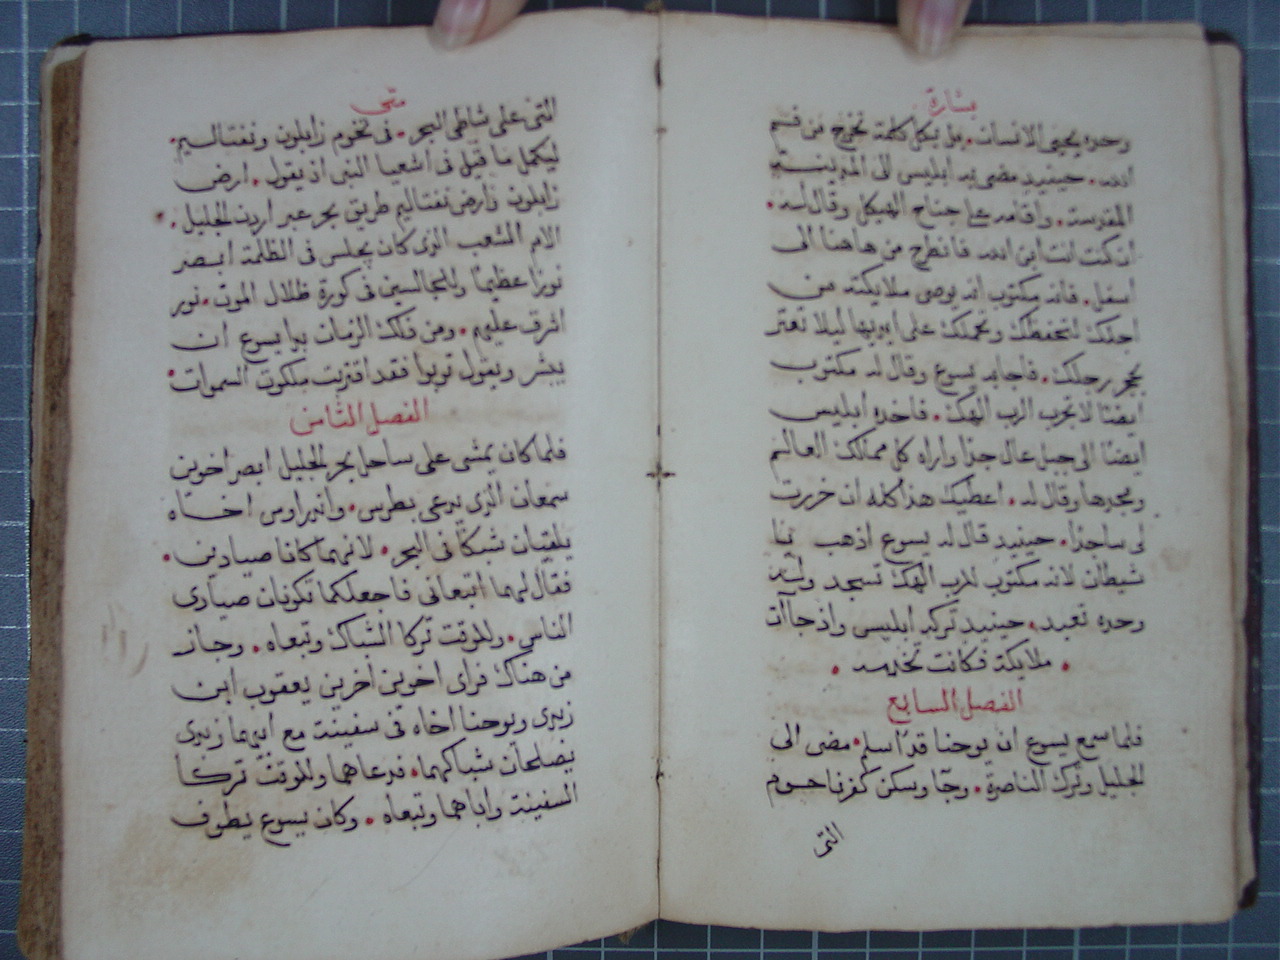 بشارة
وحده يحيى الانسان. بل بكل كلمة تخرج من فم
الله. حينيد مضى به ابليس الى المدينة
المقدسة. واقامه على جناح الهيكل وقال له.
ان كنت انت ابن الله فانطرح من هاهنا الى
اسفل. فانه مكتوب انه يوصى ملايكته من
اجلك لتحفظك وتحملك على ايديها ليلا تعثر
بحجر رجلك. فاجابه يسوع وقال له مكتوب
ايضا لا تجرب الرب الهك. فاخده ابليس
ايضا الى جبل عال جدا واراه كل ممالك العالم
ومجدها وقال له. اعطيك هذا كله ان خررت
لى ساجدا. حينيد قال له يسوع اذهب يا
شيطان لانه مكتوب للرب الهك تسجد وله
وحده تعبد. حينيد تركه ابليس واذ جاآت
. ملايكة فكانت تخدمه .
الفصل السابع
فلما سمع يسوع ان يوحنا قد اسلم. مضى الى
الجليل وترك الناصرة. وجا وسكن كفرناحوم
التى
متى
التى على شاطى البحر. فى تخوم زابلون ونفتاليم.
ليكمل ما قيل فى اشعيا النبى اذ يقول. ارض
زابلون وارض نفتاليم طريق بحر عبر اردن الجليل.
الامم الشعب الذى كان يجلس فى الظلمة ابصر
نورا عظيما وللجالسين فى كورة ظلال الموت. نور
اشرق عليهم. ومن ذلك الزمان بدا يسوع ان
يبشر ويقول توبوا فقد اقتربت ملكوت السموات.
الفصل الثامن
فلما كان يمشى على ساحل بحر الجليل ابصر اخوين
سمعان الذى يدعى بطرس. وانبراوس اخاه
يلقيان شبكا فى البحر. لانهما كانا صيادين.
فقال لهما اتبعانى فاجعلكما تكونان صيادى
الناس. وللوقت تركا الشباك وتبعاه. وجاز
من هناك فراى اخوين اخرين يعقوب ابن
زبدى ويوحنا اخاه فى سفينة مع ابيهما زبدى
يصلحان شباكهما. فدعاهما وللوقت تركا
السفينة واباهما وتبعاه. وكان يسوع يطوف